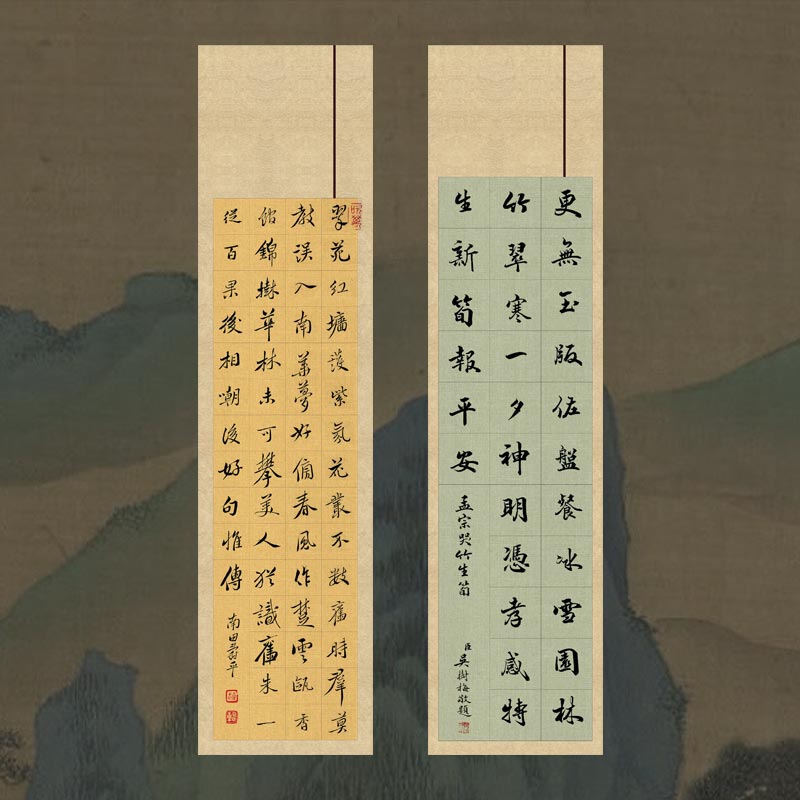 更無玉版佐盤餐冰雪園林
竹翠寒一夕神明憑孝感特
生新筍報平安
孟宗哭竹生筍
臣吳樹梅敬題
翠苑紅墻護紫氛花叢不數舊時群莫
教誤入南華夢好傍春風作楚雲甌香
館錦樹華林未可攀美人猶識舊朱一
從百果後相嘲後好句惟傳
南田壽平